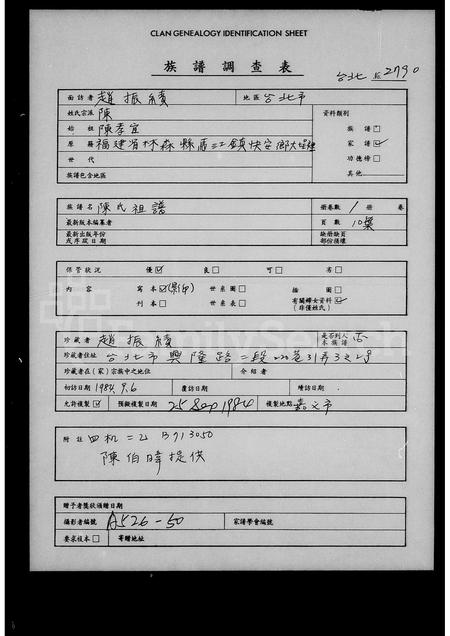 CLAN GENEALOGY IDENTIFICATION SHEET
族譜調查表
台北 2790
面訪者 趙振績 地區 台北市
姓氏宗派 陳 資料類別
始祖 陳孝宜 族譜
原籍 福建省林森縣 鎮快安鄉 家譜 ✓
世代 功德榜
族譜包含地區 其他
族譜名 陳氏祖譜 冊卷數 1 冊 卷
最新版本編纂者 頁數 10葉
最新出版年份或序跋日期 缺冊缺頁部份損壞
保管狀況 優 ✓ 良 可 劣
內容 寫本 ✓(影印) 世系圖 插圖
刊本 世系表 有關婦女資料 ✓ (非僅姓氏)
珍藏者 趙振績 是否列入本族譜 否
珍藏者住址 台北市興隆路二段220巷31弄3之2號
珍藏者在(家)宗族中之地位 介紹者
初訪日期 1984.9.6 覆訪日期 續訪日期
允許複製 ✓ 預擬複製日期 25 Sep 1984 複製地點 嘉文市
附註 四机=乙 B713050
陳伯暐提供
贈予者獎狀頒贈日期
攝影者編號 A526-50 家譜學會編號
要求複本 寄贈地址
FamilySearch